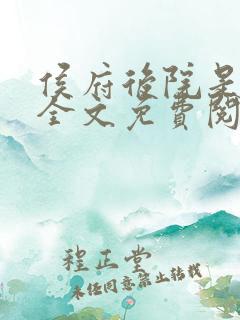 侯府後院
全文免費閱
程正堂
未经同意禁止转载